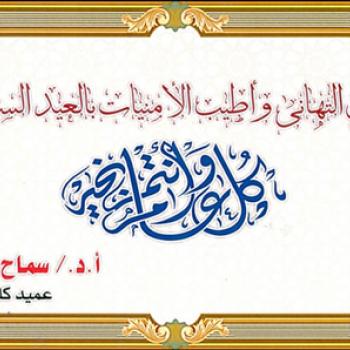 التهاني وأطيب الأمنيات بالعيد
كل عام وأنتم بخير
أ.د./ سماح
عميد